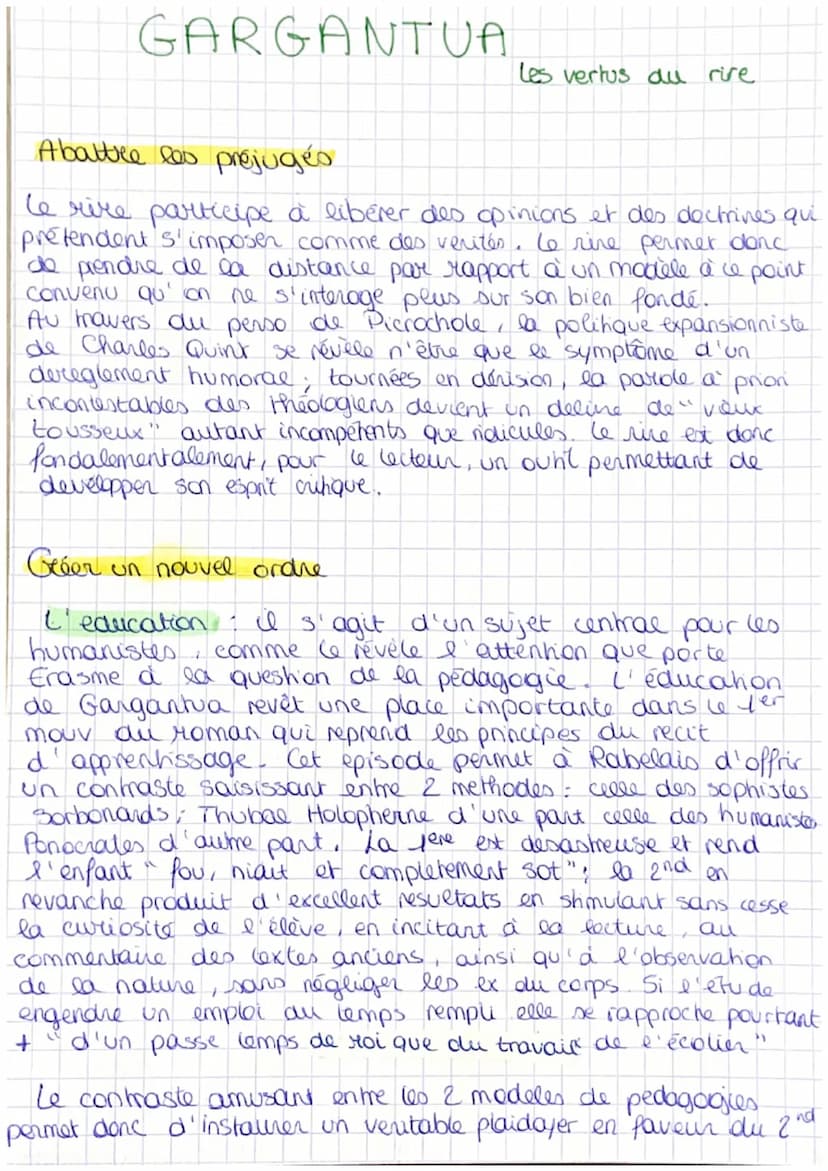 GARGANTUA
les vertus du rire
Abattre les préjugés
Le rire participe à libérer des opinions et des doctrines qui
prétendent s'imposer comme des verités. Le rire permet donc
de prendre de la distance par rapport à un modèle à ce point
convenu qu'on ne s'interoge plus sur son bien fondé.
Au travers du perso de Picrochole, la politique expansionniste
de Charles Quint se révèle n'être que le symptôme d'un
dereglement humoral ; tournées en dérision, la parole à priori
incontestables des théologiens devient un deline de "vieux
tousseux" autant incompétents que ridicules. Le rire est donc
fondalementalement, pour le lecteur, un outil permettant de
developper son esprit critique.
Créer un nouvel ordre
L'education : il s'agit d'un sujet central pour les
humanistes, comme le révèle l'attention que porte
Erasme à la question de la pédagogie. L'éducation
de Gargantua revêt une place importante dans le 1er
mouv du roman qui reprend les principes du recit
d'apprentissage. Cet épisode permet à Rabelais d'offrir
un contraste saisissant entre 2 methodes : celle des sophistes
Sorbonards ; Thubal Holopherne d'une part celle des humanistes
Ponocrates d'autre part. La 1ere est desastreuse et rend
l'enfant "fou, niait et completement sot" ; la 2nd en
revanche produit d'excellent resultats en stimulant sans cesse
la curiosité de l'élève, en incitant à la lecture, au
commentaire des textes anciens, ainsi qu'à l'observation
de la nature, sans négliger les ex du corps. Si l'étude
engendre un emploi du temps rempli elle se rapproche pourtant
+ "d'un passe temps de roi que du travail de l'écolier"
Le contraste amusant entre les 2 modeles de pedagogies
permet donc d'instaurer un veritable plaidoyer en faveur du 2nd